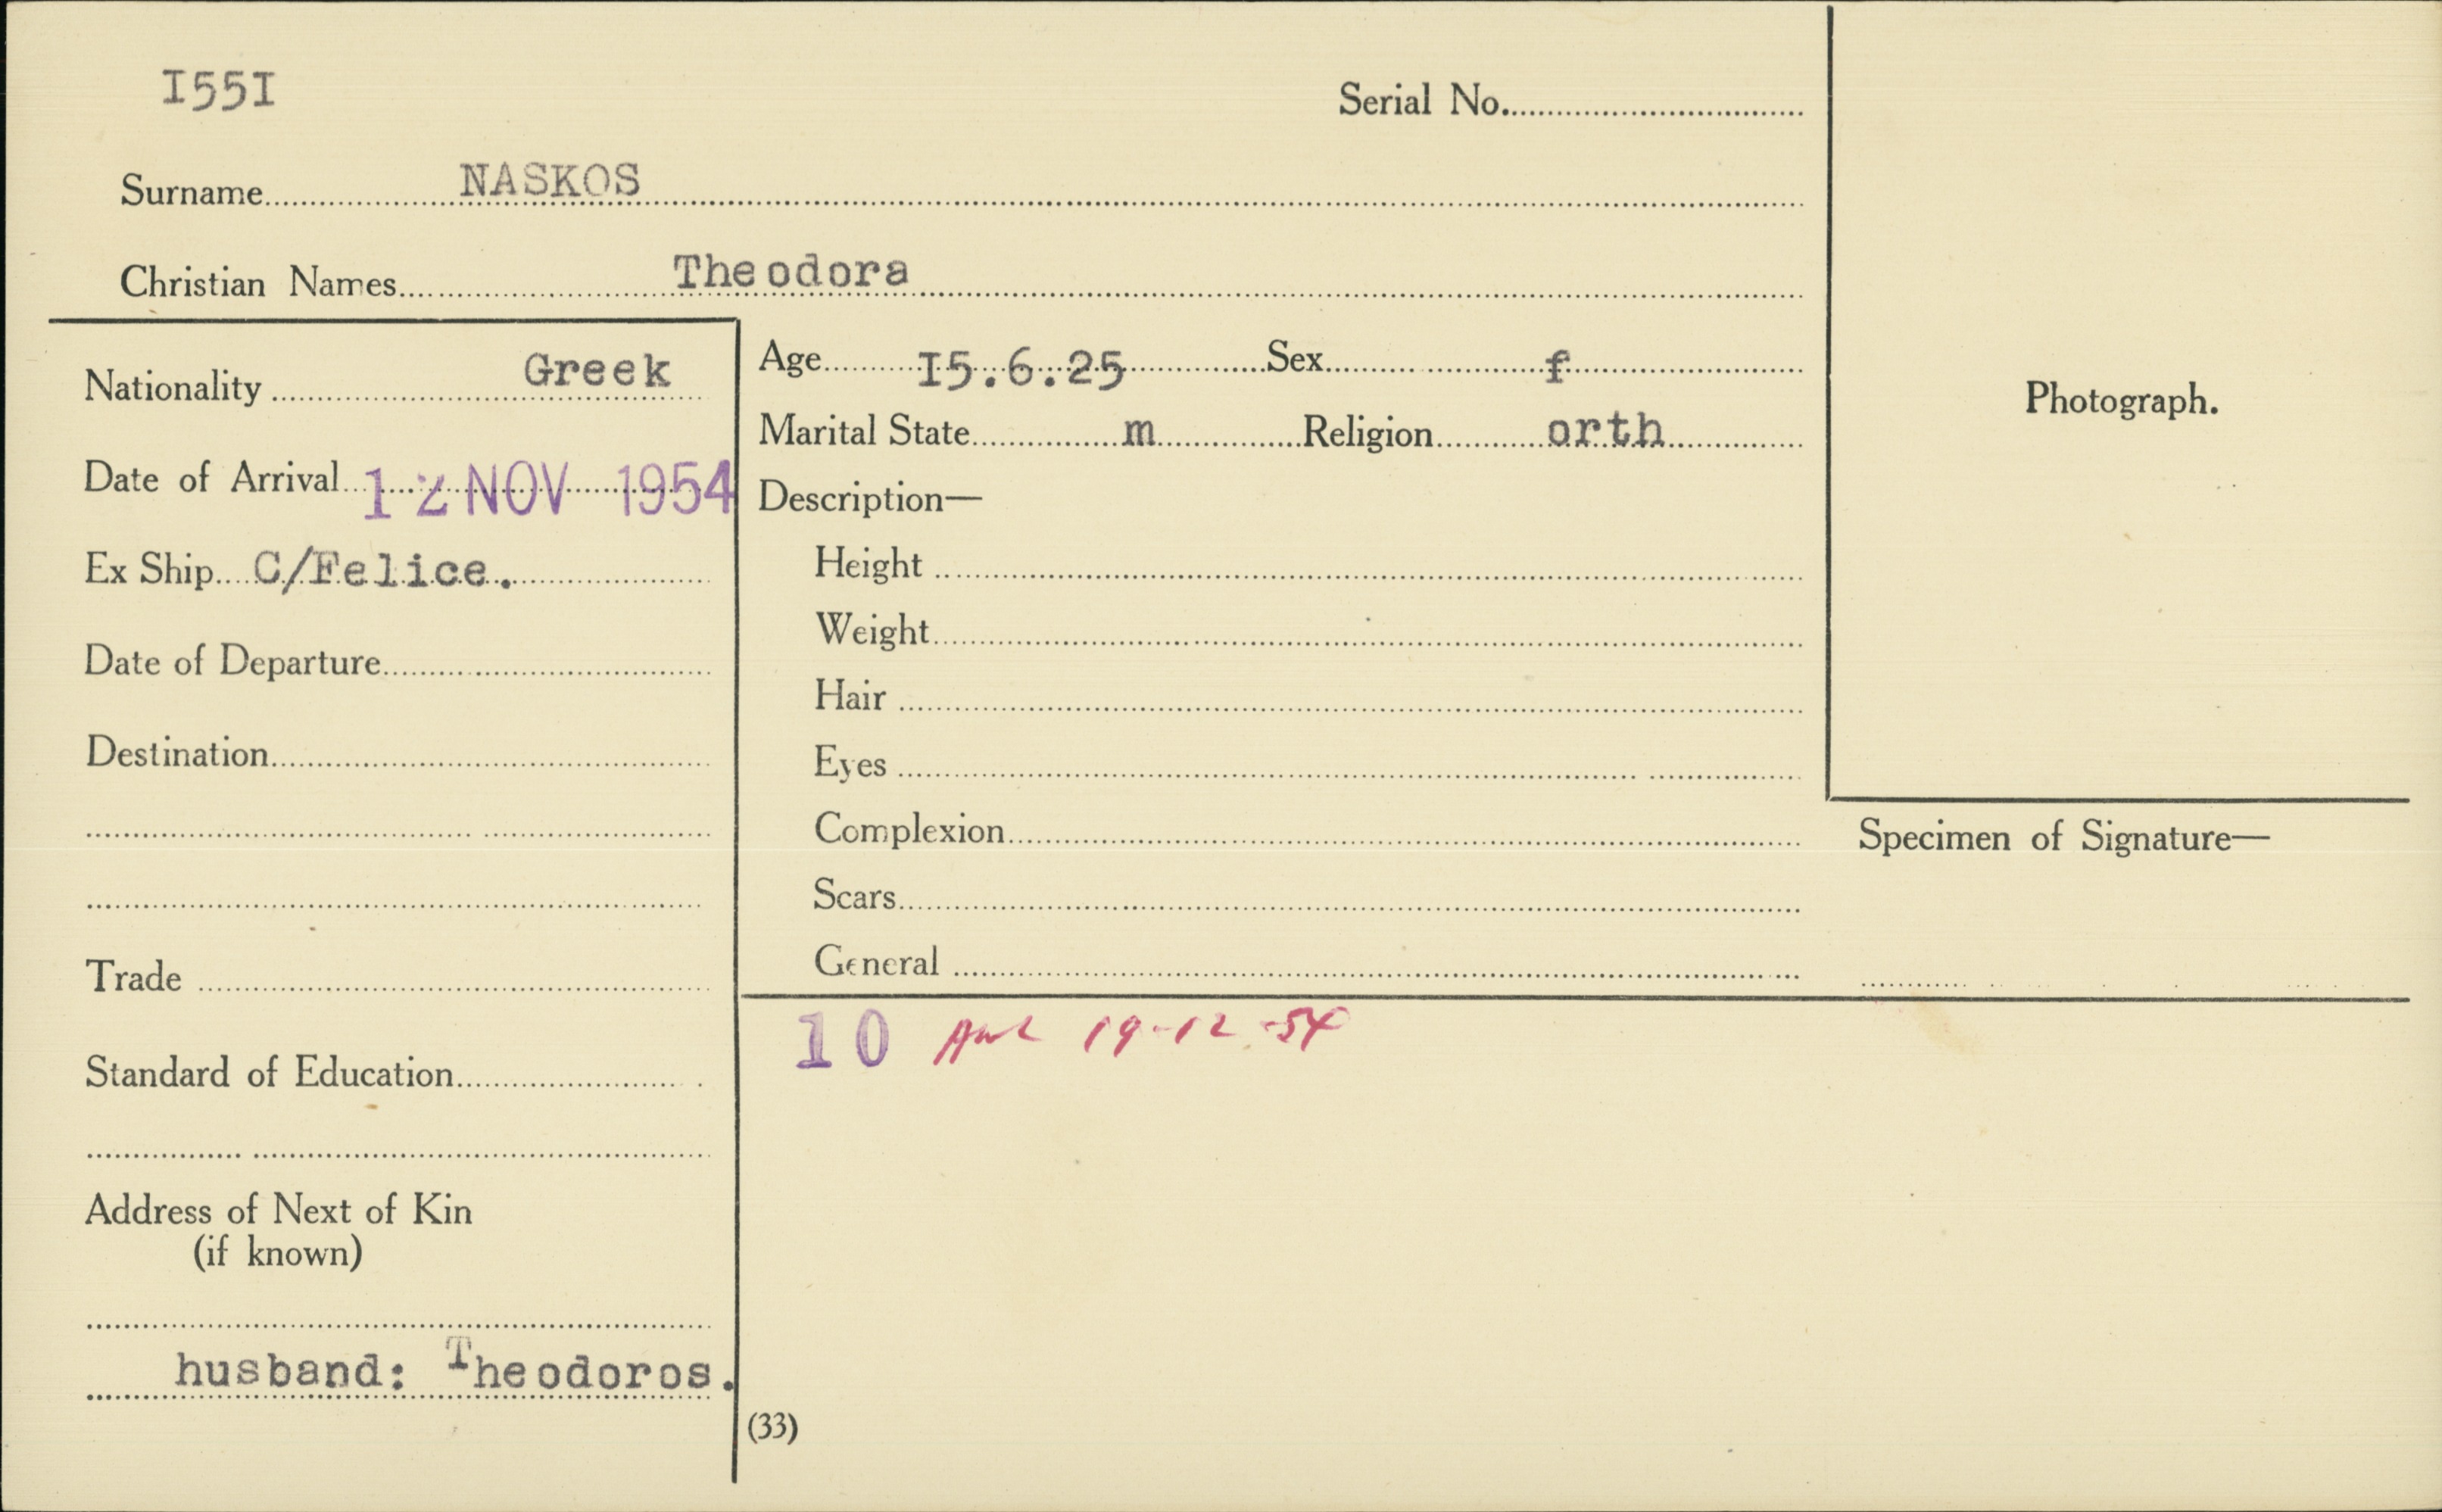 I55I
Serial No.
Surname NASKOS
Christian Names Theodora
Nationality Greek
Date of Arrival 12 NOV 1954
Ex Ship C/Felice.
Date of Departure
Destination
Trade
Standard of Education
Address of Next of Kin
(if known)
husband: Theodoros.
Age I5.6.25 Sex f
Marital State m Religion orth
Description—
Height
Weight
Hair
Eyes
Complexion
Scars
General
Photograph.
Specimen of Signature—
10 19-12-54
(33)